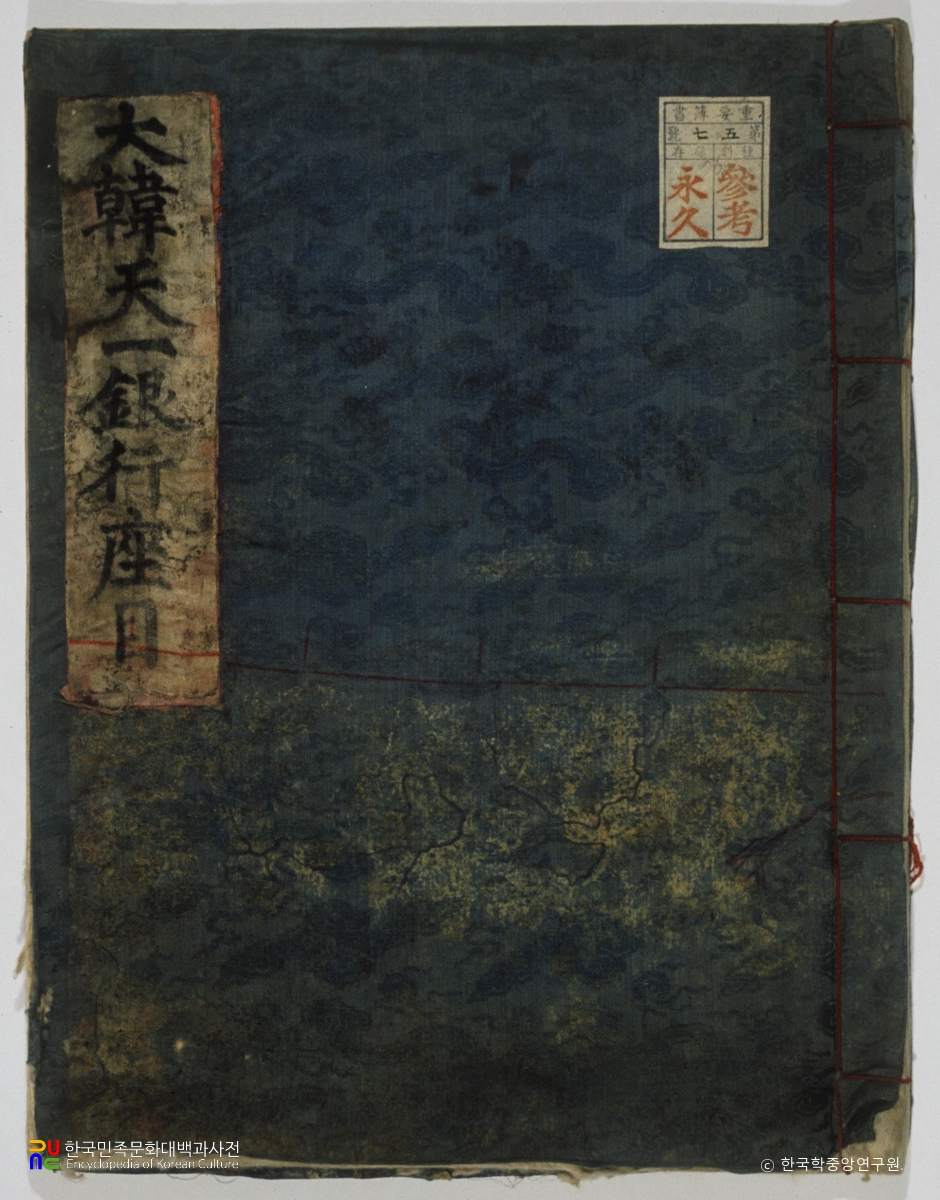 大韓天一銀行座目
重要簿書
第五七號
種別保存
參考
永久
한국민족문화대백과사전
Encyclopedia of Korean Culture
© 한국학중앙연구원